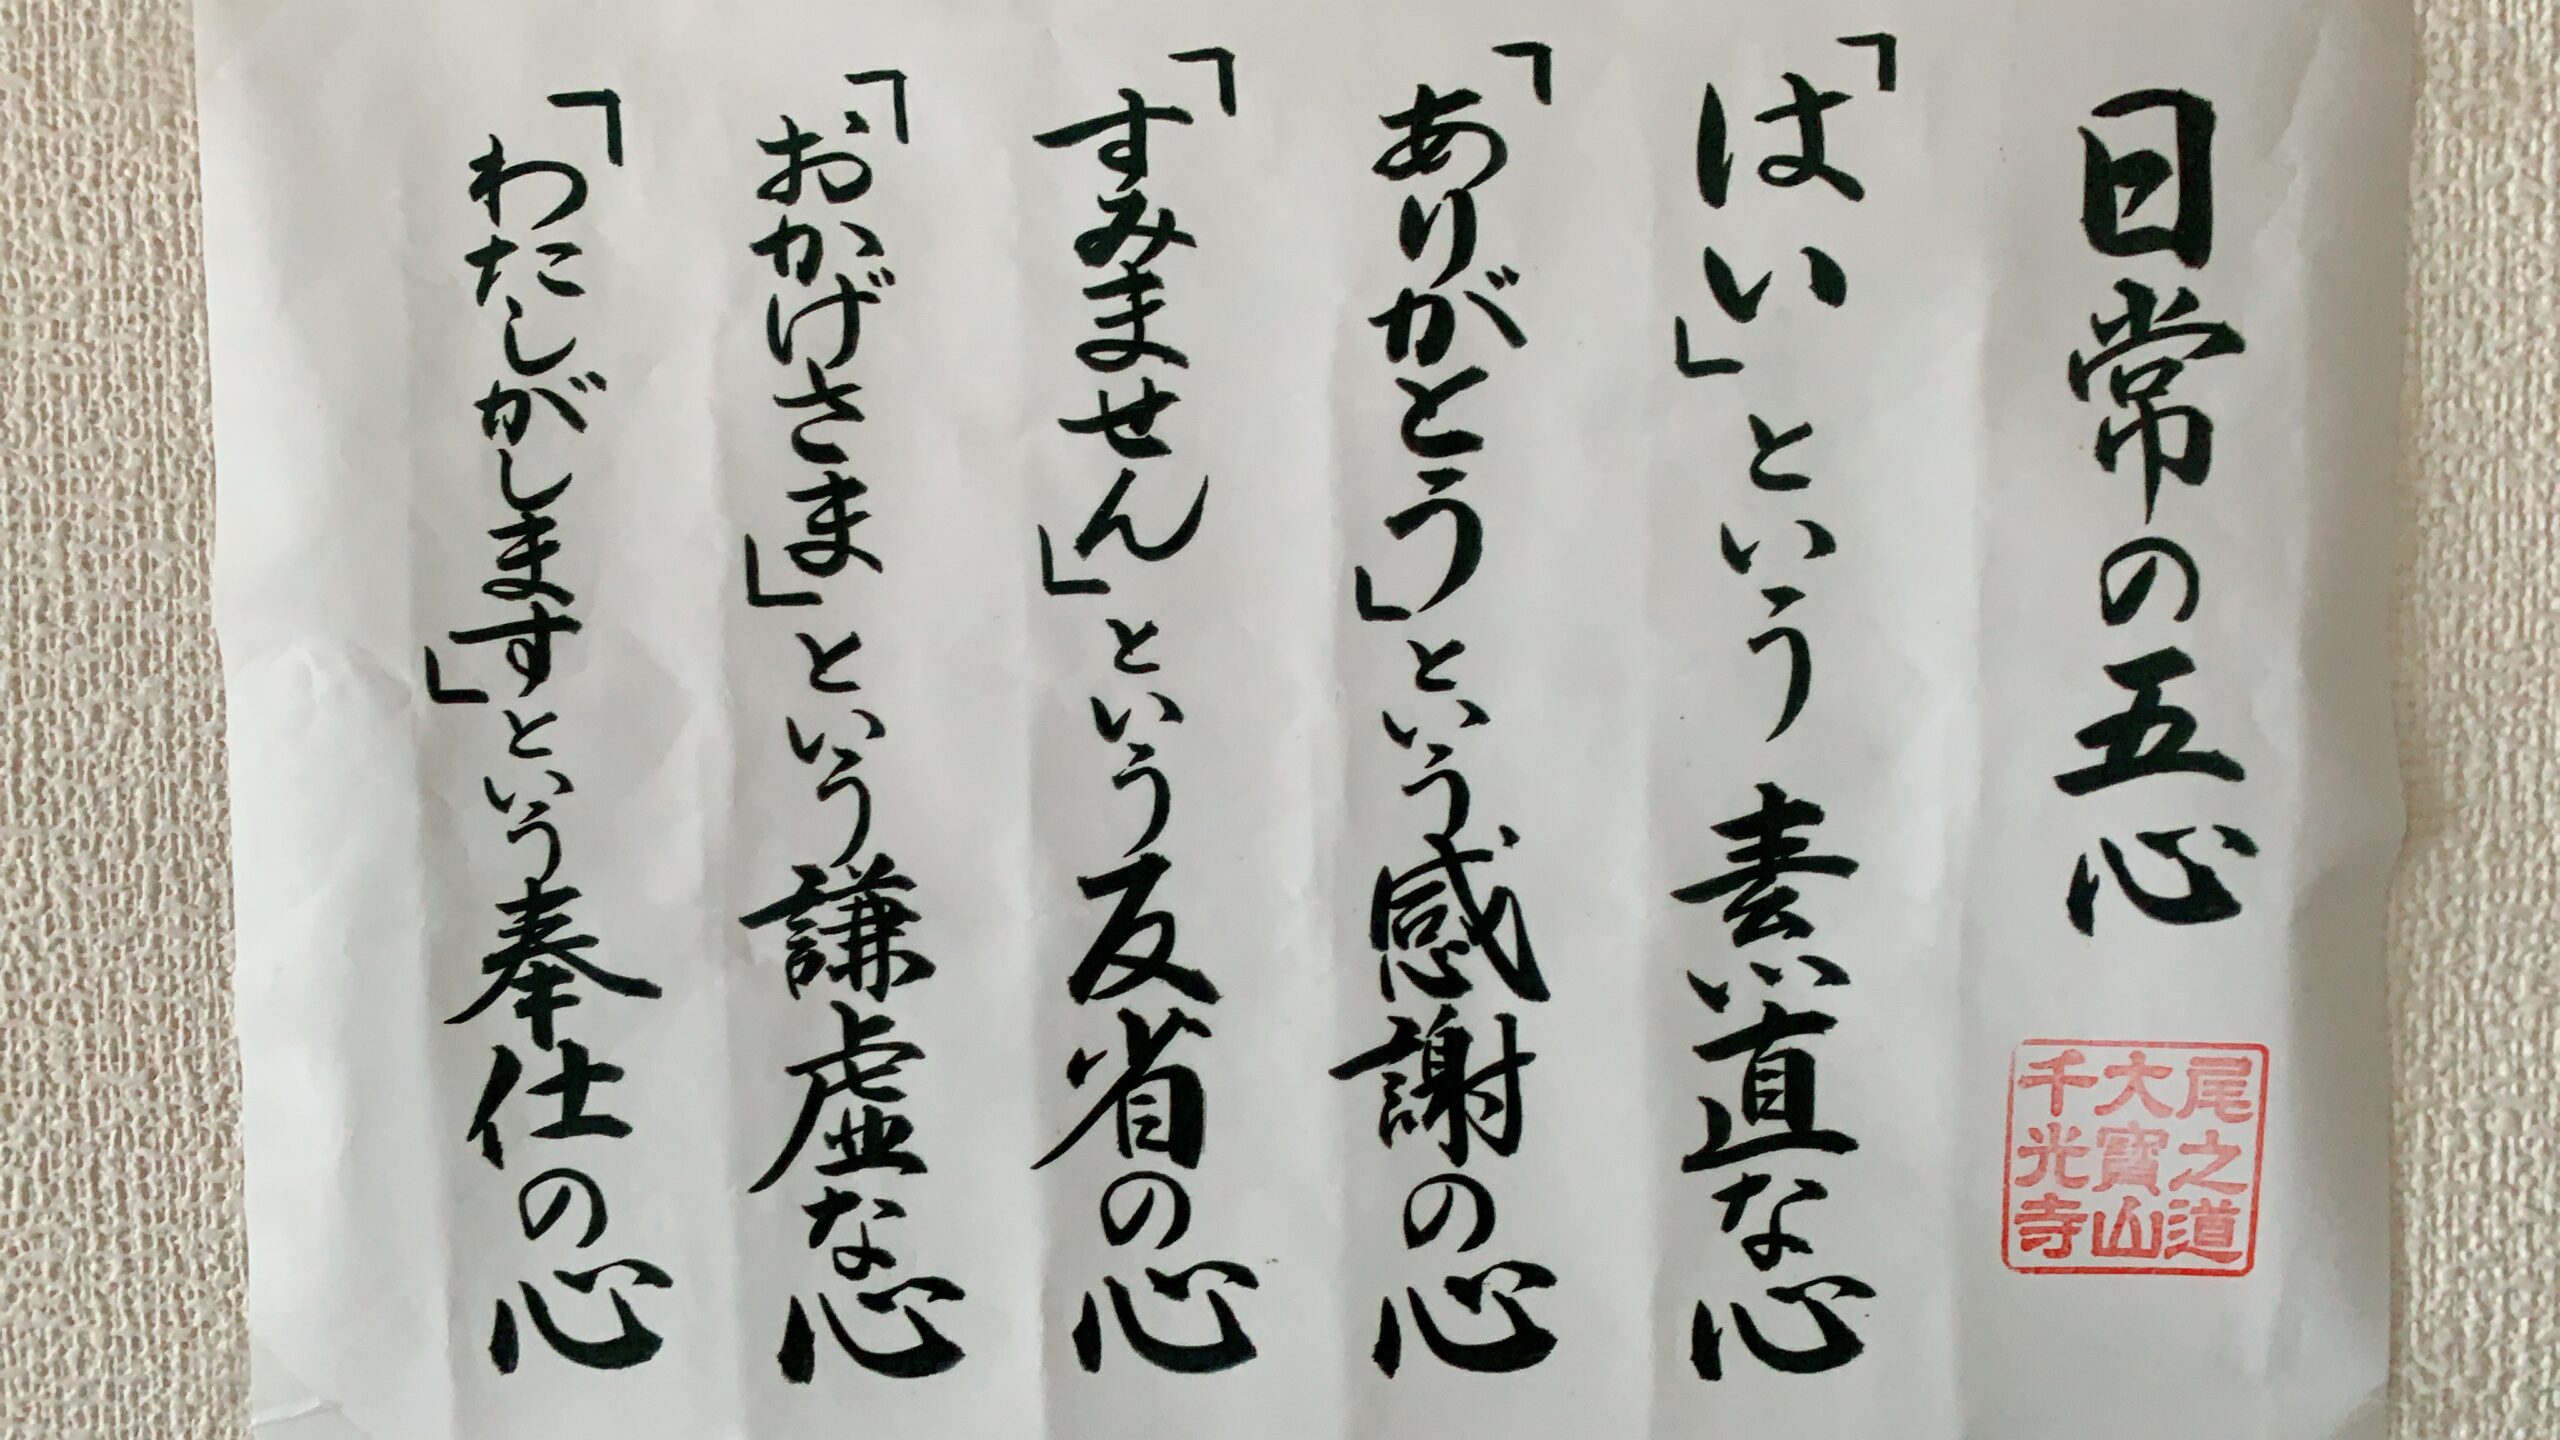 日常の五心
尾之道
大寶山
千光寺
「はい」という素直な心
「ありがとう」という感謝の心
「すみません」という反省の心
「おかげさま」という謙虚な心
「わたしがします」という奉仕の心